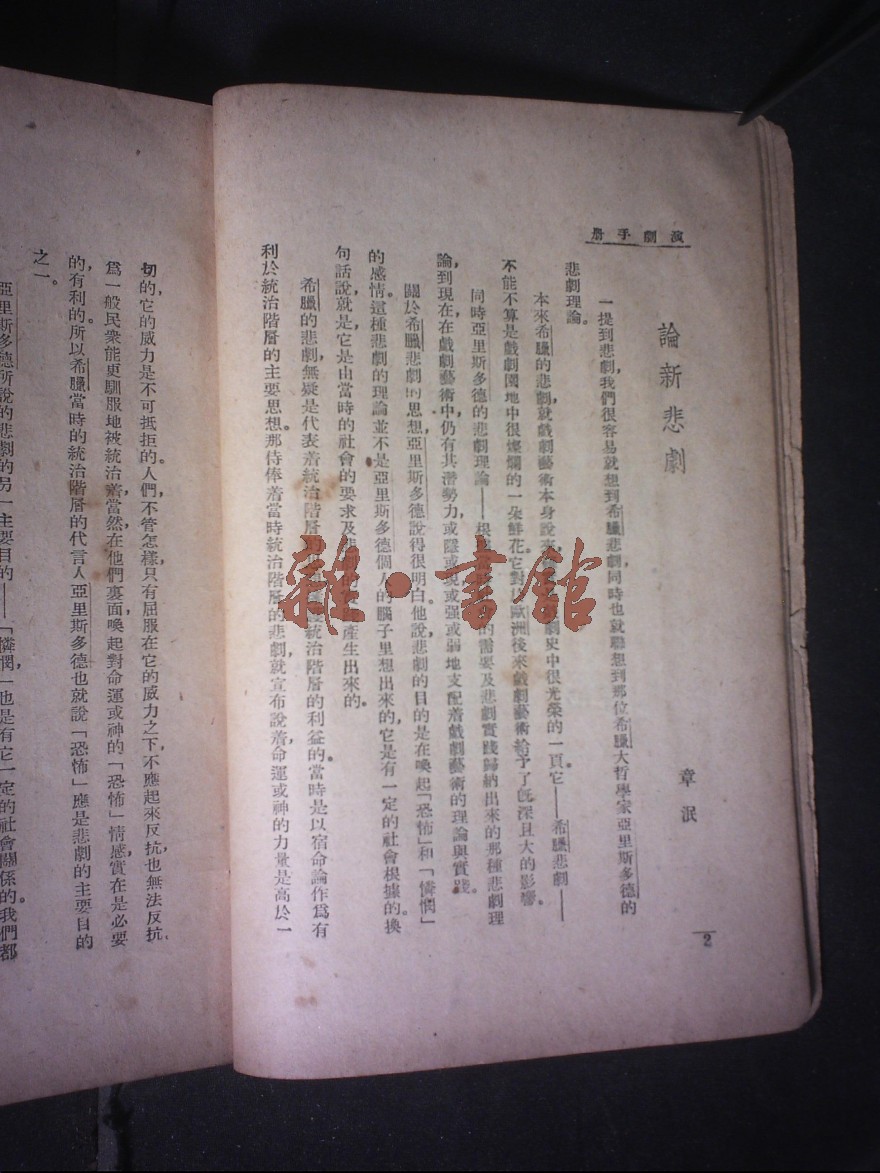 演劇手册
論新悲劇
章泯
一提到悲劇，我們很容易就想到希臘悲劇，同時也就聯想到那位希臘大哲學家亞里斯多德的
悲劇理論。
本來希臘的悲劇，就戲劇藝術本身說來，劇史中很光榮的一頁。它——希臘悲劇——
不能不算是戲劇園地中很燦爛的一朵鮮花。它對以歐洲後來戲劇藝術給予了旣深且大的影響。
同時亞里斯多德的悲劇理論——根的需要及悲劇實踐歸納出來的那種悲劇理
論，到現在在戲劇藝術中仍有其潛勢力，或隱或現或强或弱地支配着戲劇藝術的理論與實踐。
關於希臘悲劇的思想，亞里斯多德說得很明白，他說悲劇的目的是在喚起「恐怖」和「憐憫」
的感情。這種悲劇的理論並不是亞里斯多德個人的腦子里想出來的，它是有一定的社會根據的。換
句話說，就是，它是由當時的社會的要求及產生出來的。
希臘的悲劇，無疑是代表着統治階層的統治階層的利益的。當時是以宿命論作爲有
利於統治階層的主要思想。那侍俸着當時統治階層的悲劇，就宣布說着，命運或神的力量是高於一
2
切的，它的威力是不可抵拒的。人們，不管怎樣，只有屈服在它的威力之下，不應起來反抗，也無法反抗。
爲一般民衆能更馴服地被統治着，當然在他們裏面喚起對命運或神的「恐怖」情感，實在是必要
的，有利的。所以希臘當時的統治階層的代言人亞里斯多德也就說「恐怖」應是悲劇的主要目的
之一。
亞里斯多德所說的悲劇的另一主要目的——「憐憫」也是有它一定的社會關係的。我們都
雜·書館